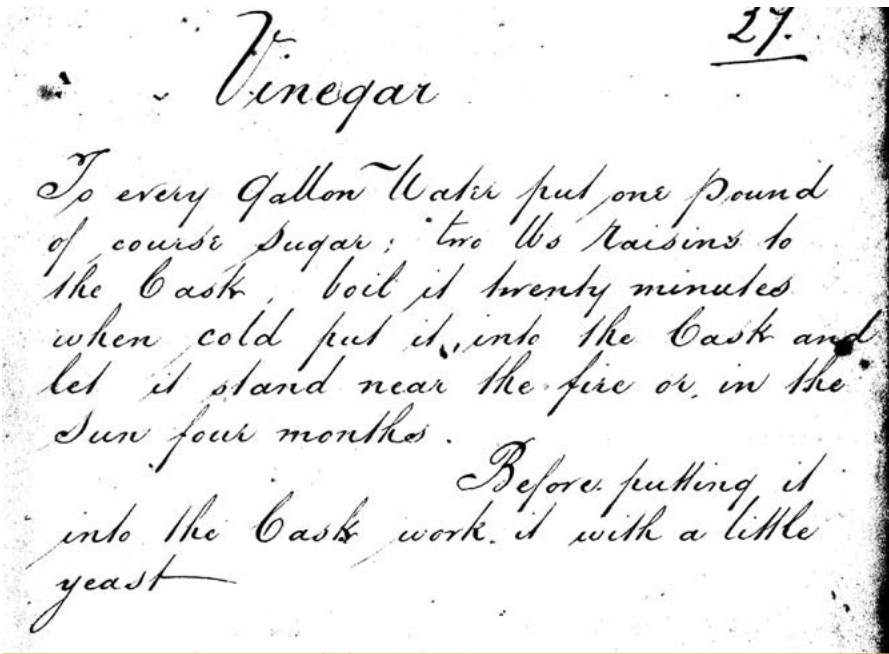 27.
Vinegar
To every Gallon Water put one pound
of course Sugar; two lbs Raisins to
the Cask, boil it twenty minutes
when cold put it, into the Cask and
let it stand near the fire or, in the
Sun four months.
Before putting it
into the Cask work. it with a little
yeast